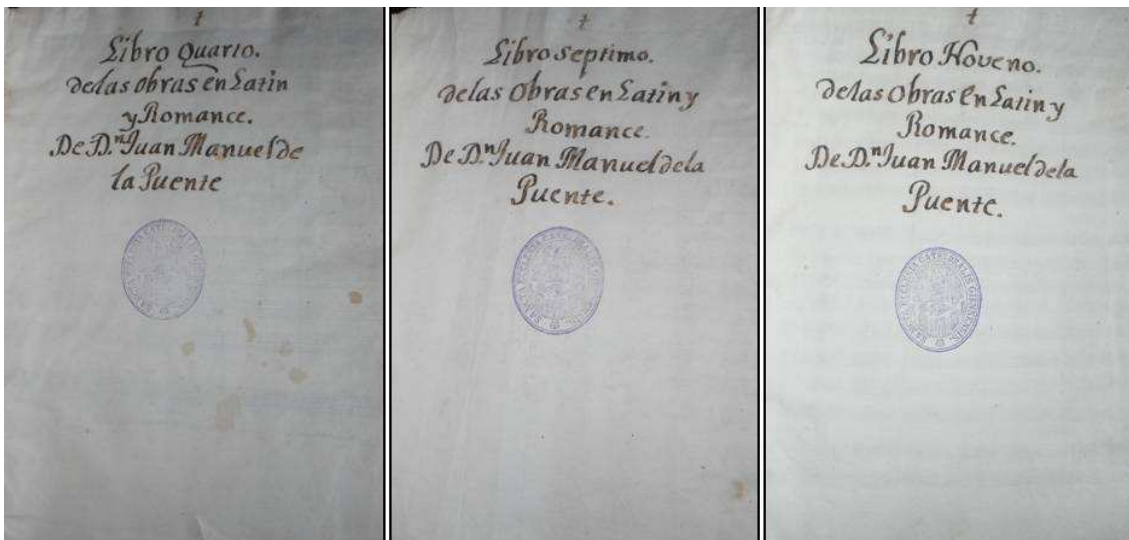 †
Libro Quarto.
de las obras en Latin
y Romance.
De D.ⁿ Juan Manuel de
la Puente
†
Libro septimo.
de las Obras en Latin y
Romance.
De D.ⁿ Juan Manuel de la
Puente.
†
Libro Noveno.
de las Obras en Latin y
Romance.
De D.ⁿ Juan Manuel de la
Puente.
SANCTA ECCLESIA CATHEDRALIS GIENNENSIS